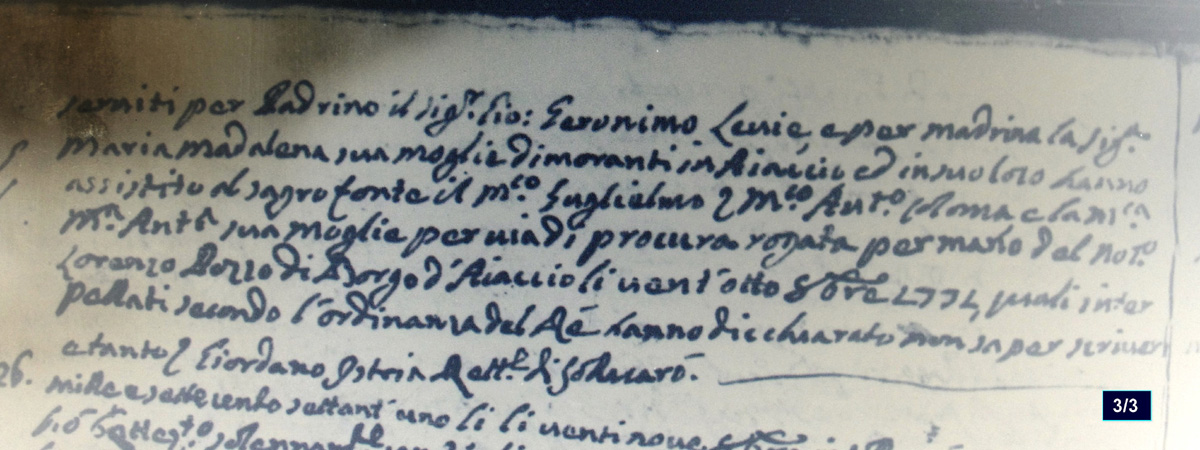 serviti per Padrino il Sig.r Gio: Geronimo Levie, e per madrina la Sig.ra
Maria Madalena sua moglie dimoranti in Aiaccio ed in suo loco hanno
assistito al sagro fonte il M.co Guglielmo q M.co Ant.o Coloma e la M.ca
M.a Ant.a sua moglie per via di procura rogata per mano del Not.o
Lorenzo Pozzo di Borgo d'Aiaccio li vent'otto 8bre 1771, quali inter
pellati secondo l'ordinanza del Ré hanno dicchiarato non saper scriveri
e tanto Giordano Istria Rett.e di
26. mille e sette cento settant'uno li li ventinove
hó Battez.to solennam.te
3/3